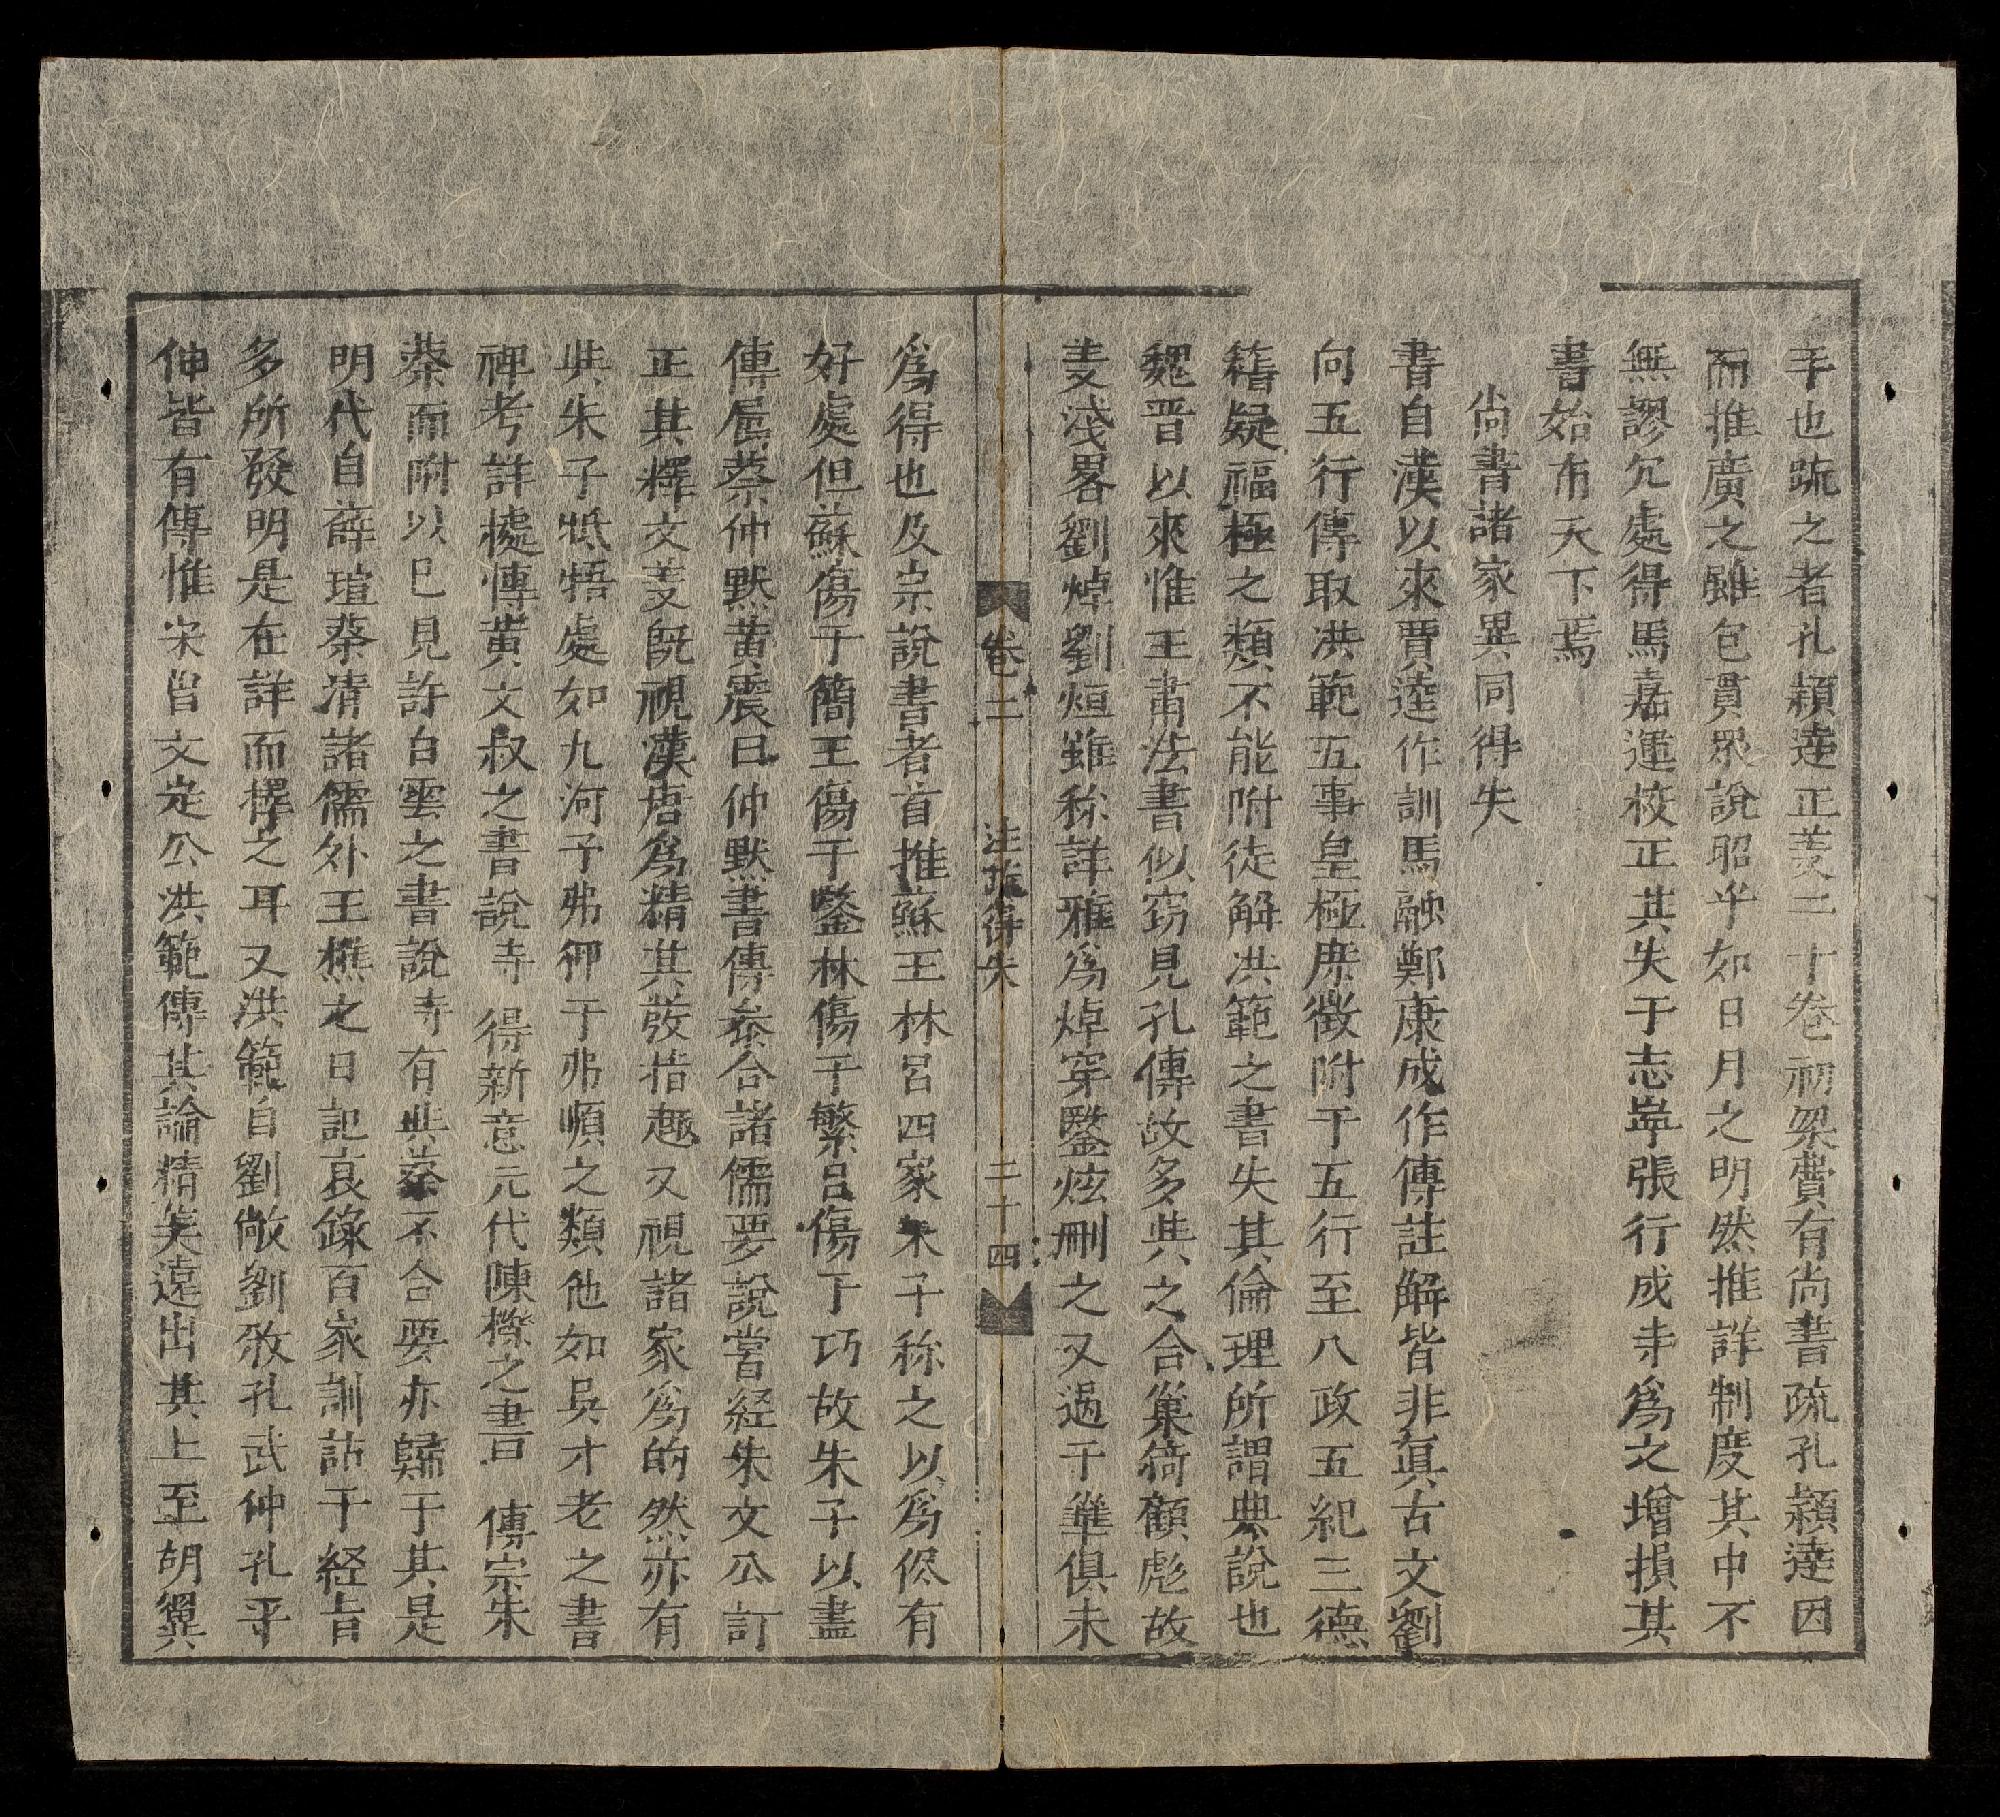 手也疏之者孔穎達正義二十卷初梁費有尚書疏孔穎達因
而推廣之雖包貫眾說昭乎如日月之明然推詳制度其中不
無謬冗處得馬嘉運校正其失于志寧張行成寺為之增損其
書始布天下焉
尚書諸家異同得失
書自漢以來賈逵作訓馬融鄭康成作傳註解皆非真古文劉
向五行傳取洪範五事皇極庶徵附于五行至八政五紀三德
稽疑福極之類不能附徒解洪範之書失其倫理所謂典說也
魏晋以來惟王肅法書似窃見孔傳故多與之合巢猗顧彪故
義淺畧劉焯劉烜雖称詳雅為焯穿鑿炫刪之又過于準俱未
卷二 注疏得失 二十四
為得也及宗說書者首推蘇王林呂四家朱子称之以為侭有
好處但蘇傷于簡王傷于鑿林傷于繁呂傷于巧故朱子以盡
傳屬蔡仲默黄震曰仲默書傳叅合諸儒要說嘗経朱文公訂
正其釋文义旣視漢唐為精其發指趣又視諸家為的然亦有
與朱子牴牾處如九河子弗御于弗順之類他如吳才老之書
裨考詳樓傳黄文叔之書說寺 得新意元代陳櫟之書 傳宗朱
蔡而附以巳見許白雲之書說寺有與蔡不合要亦歸于其是
明代自薛瑄蔡清諸儒外王樵之日記裒錄百家訓詁于経旨
多所發明是在詳而擇之耳又洪範自劉敞劉敓孔武仲孔平
仲皆有傳惟宋曾文定公洪範傳其論精矣遠出其上至胡翼